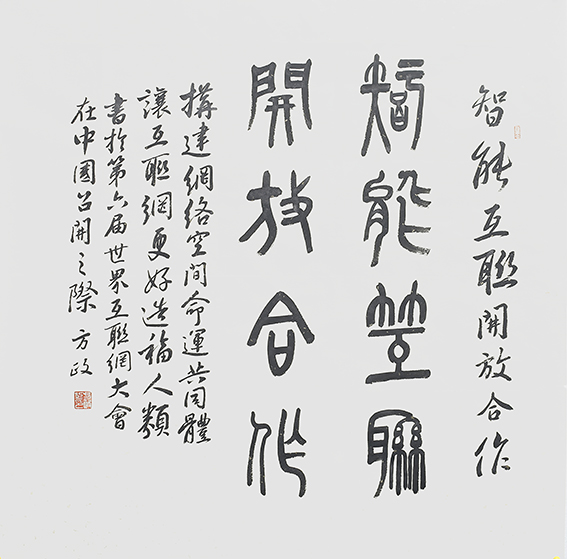 智能互聯開放合作
智能互聯
開放合作
搆建網絡空間命運共同體
讓互聯網更好造福人類
書於第六届世界互聯網大會
在中國召開之際 方政